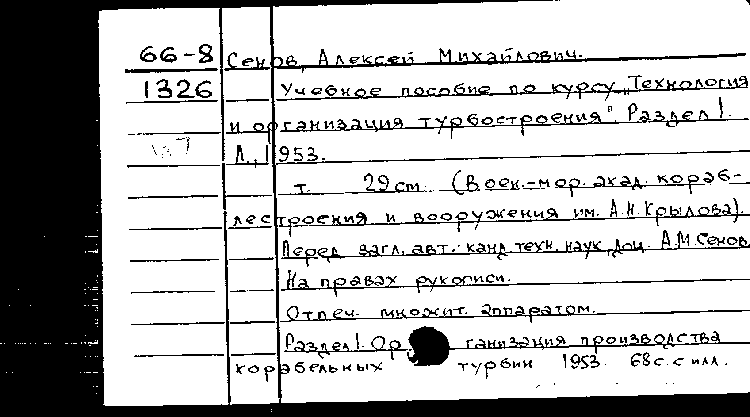 66-8 Сенов, Алексей Михайлович.
1326 Учебное пособие по курсу „Технология
и организация турбостроения" Раздел I.
Л., 1953.
т. 29 cm. (Воен.-мор. акад. кораб-
лестроения и вооружения им. А.Н. Крылова).
Перед загл. авт.: канд. техн. наук, доц. А.М. Сенов
На правах рукописи.
Отпеч. множит. аппаратом.
Раздел I. Организация производства
корабельных турбин 1953. 68 с. с илл.